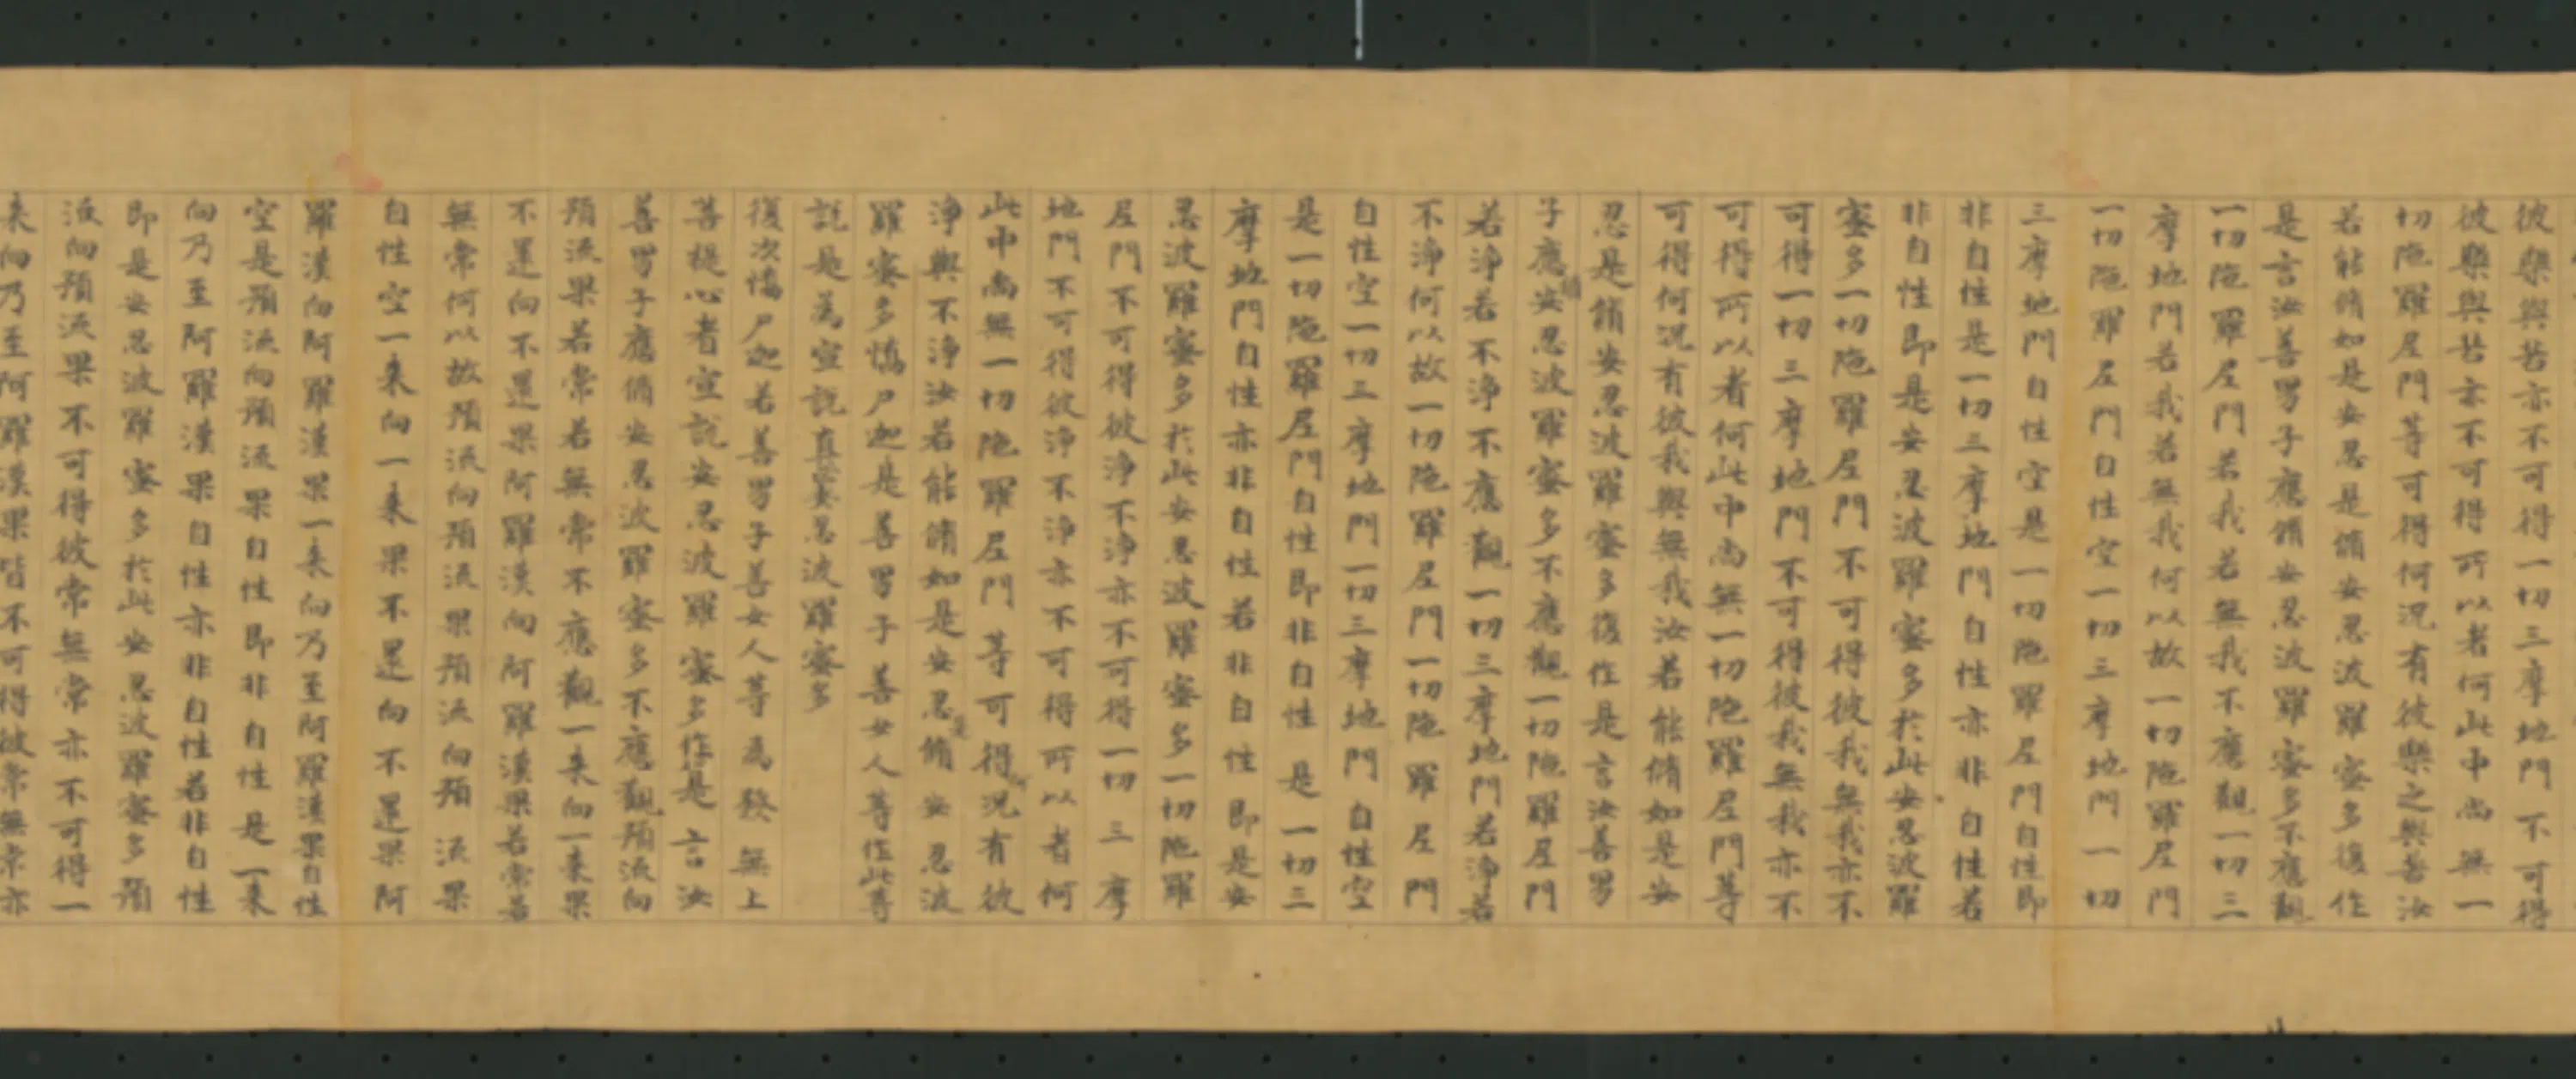 彼樂與苦亦不可得一切三摩地門不可得
彼樂與苦亦不可得所以者何此中尚無一
切陁羅尼門等可得何況有彼樂之與苦汝
若能脩如是安忍是脩安忍波羅蜜多復作
是言汝善男子應脩安忍波羅蜜多不應觀
一切陁羅尼門若我若無我不應觀一切三
摩地門若我若無我何以故一切陁羅尼門
一切陁羅尼門自性空一切三摩地門一切
三摩地門自性空是一切陁羅尼門自性即
非自性是一切三摩地門自性亦非自性若
非自性即是安忍波羅蜜多於此安忍波羅
蜜多一切陁羅尼門不可得彼我無我亦不
可得一切三摩地門不可得彼我無我亦不
可得所以者何此中尚無一切陁羅尼門等
可得何況有彼我與無我汝若能脩如是安
忍是脩安忍波羅蜜多復作是言汝善男
子應脩安忍波羅蜜多不應觀一切陁羅尼門
若淨若不淨不應觀一切三摩地門若淨若
不淨何以故一切陁羅尼門一切陁羅尼門
自性空一切三摩地門一切三摩地門自性空
是一切陁羅尼門自性即非自性是一切三
摩地門自性亦非自性若非自性即是安
忍波羅蜜多於此安忍波羅蜜多一切陁羅
尼門不可得彼淨不淨亦不可得一切三摩
地門不可得彼淨不淨亦不可得所以者何
此中尚無一切陁羅尼門等可得何況有彼
淨與不淨汝若能脩如是安忍是脩安忍波
羅蜜多憍尸迦是善男子善女人等作此等
說是為宣說真安忍波羅蜜多
復次憍尸迦若善男子善女人等為發無上
菩提心者宣說安忍波羅蜜多作是言汝
善男子應脩安忍波羅蜜多不應觀預流向
預流果若常若無常不應觀一来向一来果
不還向不還果阿羅漢向阿羅漢果若常若
無常何以故預流向預流果預流向預流果
自性空一来向一来果不還向不還果阿
羅漢向阿羅漢果一来向乃至阿羅漢果自性
空是預流向預流果自性即非自性是一来
向乃至阿羅漢果自性亦非自性若非自性
即是安忍波羅蜜多於此安忍波羅蜜多預
流向預流果不可得彼常無常亦不可得一
来向乃至阿羅漢果皆不可得彼常無常亦